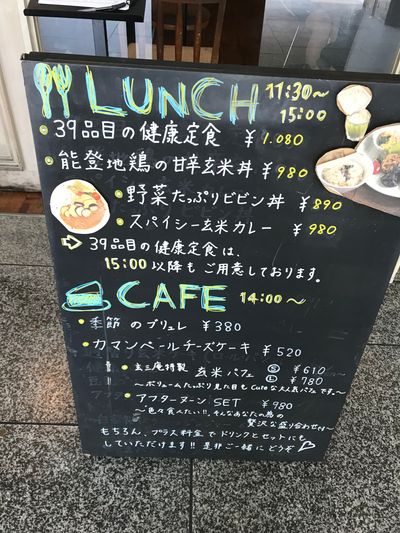 LUNCH 11:30〜
15:00
39品目の健康定食 ¥1.080
能登地鶏の甘辛玄米丼 ¥980
野菜たっぷりビビン丼 ¥890
スパイシー玄米カレー ¥980
39品目の健康定食は、
15:00以降もご用意しております。
CAFE 14:00〜
季節のブリュレ ¥380
カマンベールチーズケーキ ¥520
玄三庵特製 玄米パフェ Ⓢ ¥610
Ⓛ ¥780
〜ボリュームたっぷり見た目もcuteな大人気パフェです。〜
アフタヌーンSET ¥980
〜色々食べたい!!、そんなあなたの為の
贅沢な盛り合わせ〜
もちろん、プラス料金でドリンクとセットにも
していただけます!! 是非ご一緒にどうぞ♡